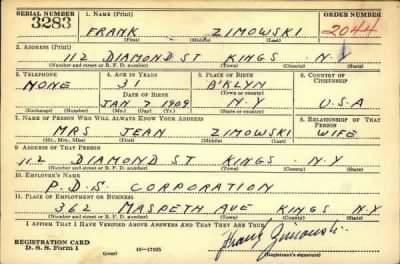 SERIAL NUMBER 1. NAME (Print) ORDER NUMBER
3283 FRANK ZIMOWSKI 2044
(First) (Middle) (Last)
2. ADDRESS (Print)
112 DIAMOND ST KINGS N.Y
(Number and street or R. F. D. number) (Town) (County) (State)
3. TELEPHONE 4. AGE IN YEARS 5. PLACE OF BIRTH 6. COUNTRY OF CITIZENSHIP
NONE 31 B'KLYN
DATE OF BIRTH (Town or county)
JAN 7 1909 N.Y U.S.A
(Exchange) (Number) (Mo.) (Day) (Yr.) (State or country)
7. NAME OF PERSON WHO WILL ALWAYS KNOW YOUR ADDRESS 8. RELATIONSHIP OF THAT PERSON
MRS JEAN ZIMOWSKI WIFE
(Mr., Mrs., Miss) (First) (Middle) (Last)
9. ADDRESS OF THAT PERSON
112 DIAMOND ST KINGS N.Y
(Number and street or R. F. D. number) (Town) (County) (State)
10. EMPLOYER'S NAME
P.D.S. CORPORATION
11. PLACE OF EMPLOYMENT OR BUSINESS
362 MASPETH AVE KINGS N.Y
(Number and street or R. F. D. number) (Town) (County) (State)
I AFFIRM THAT I HAVE VERIFIED ABOVE ANSWERS AND THAT THEY ARE TRUE.
REGISTRATION CARD Frank Zimowski
D. S. S. Form 1 (over) 16—17105 (Registrant's signature)